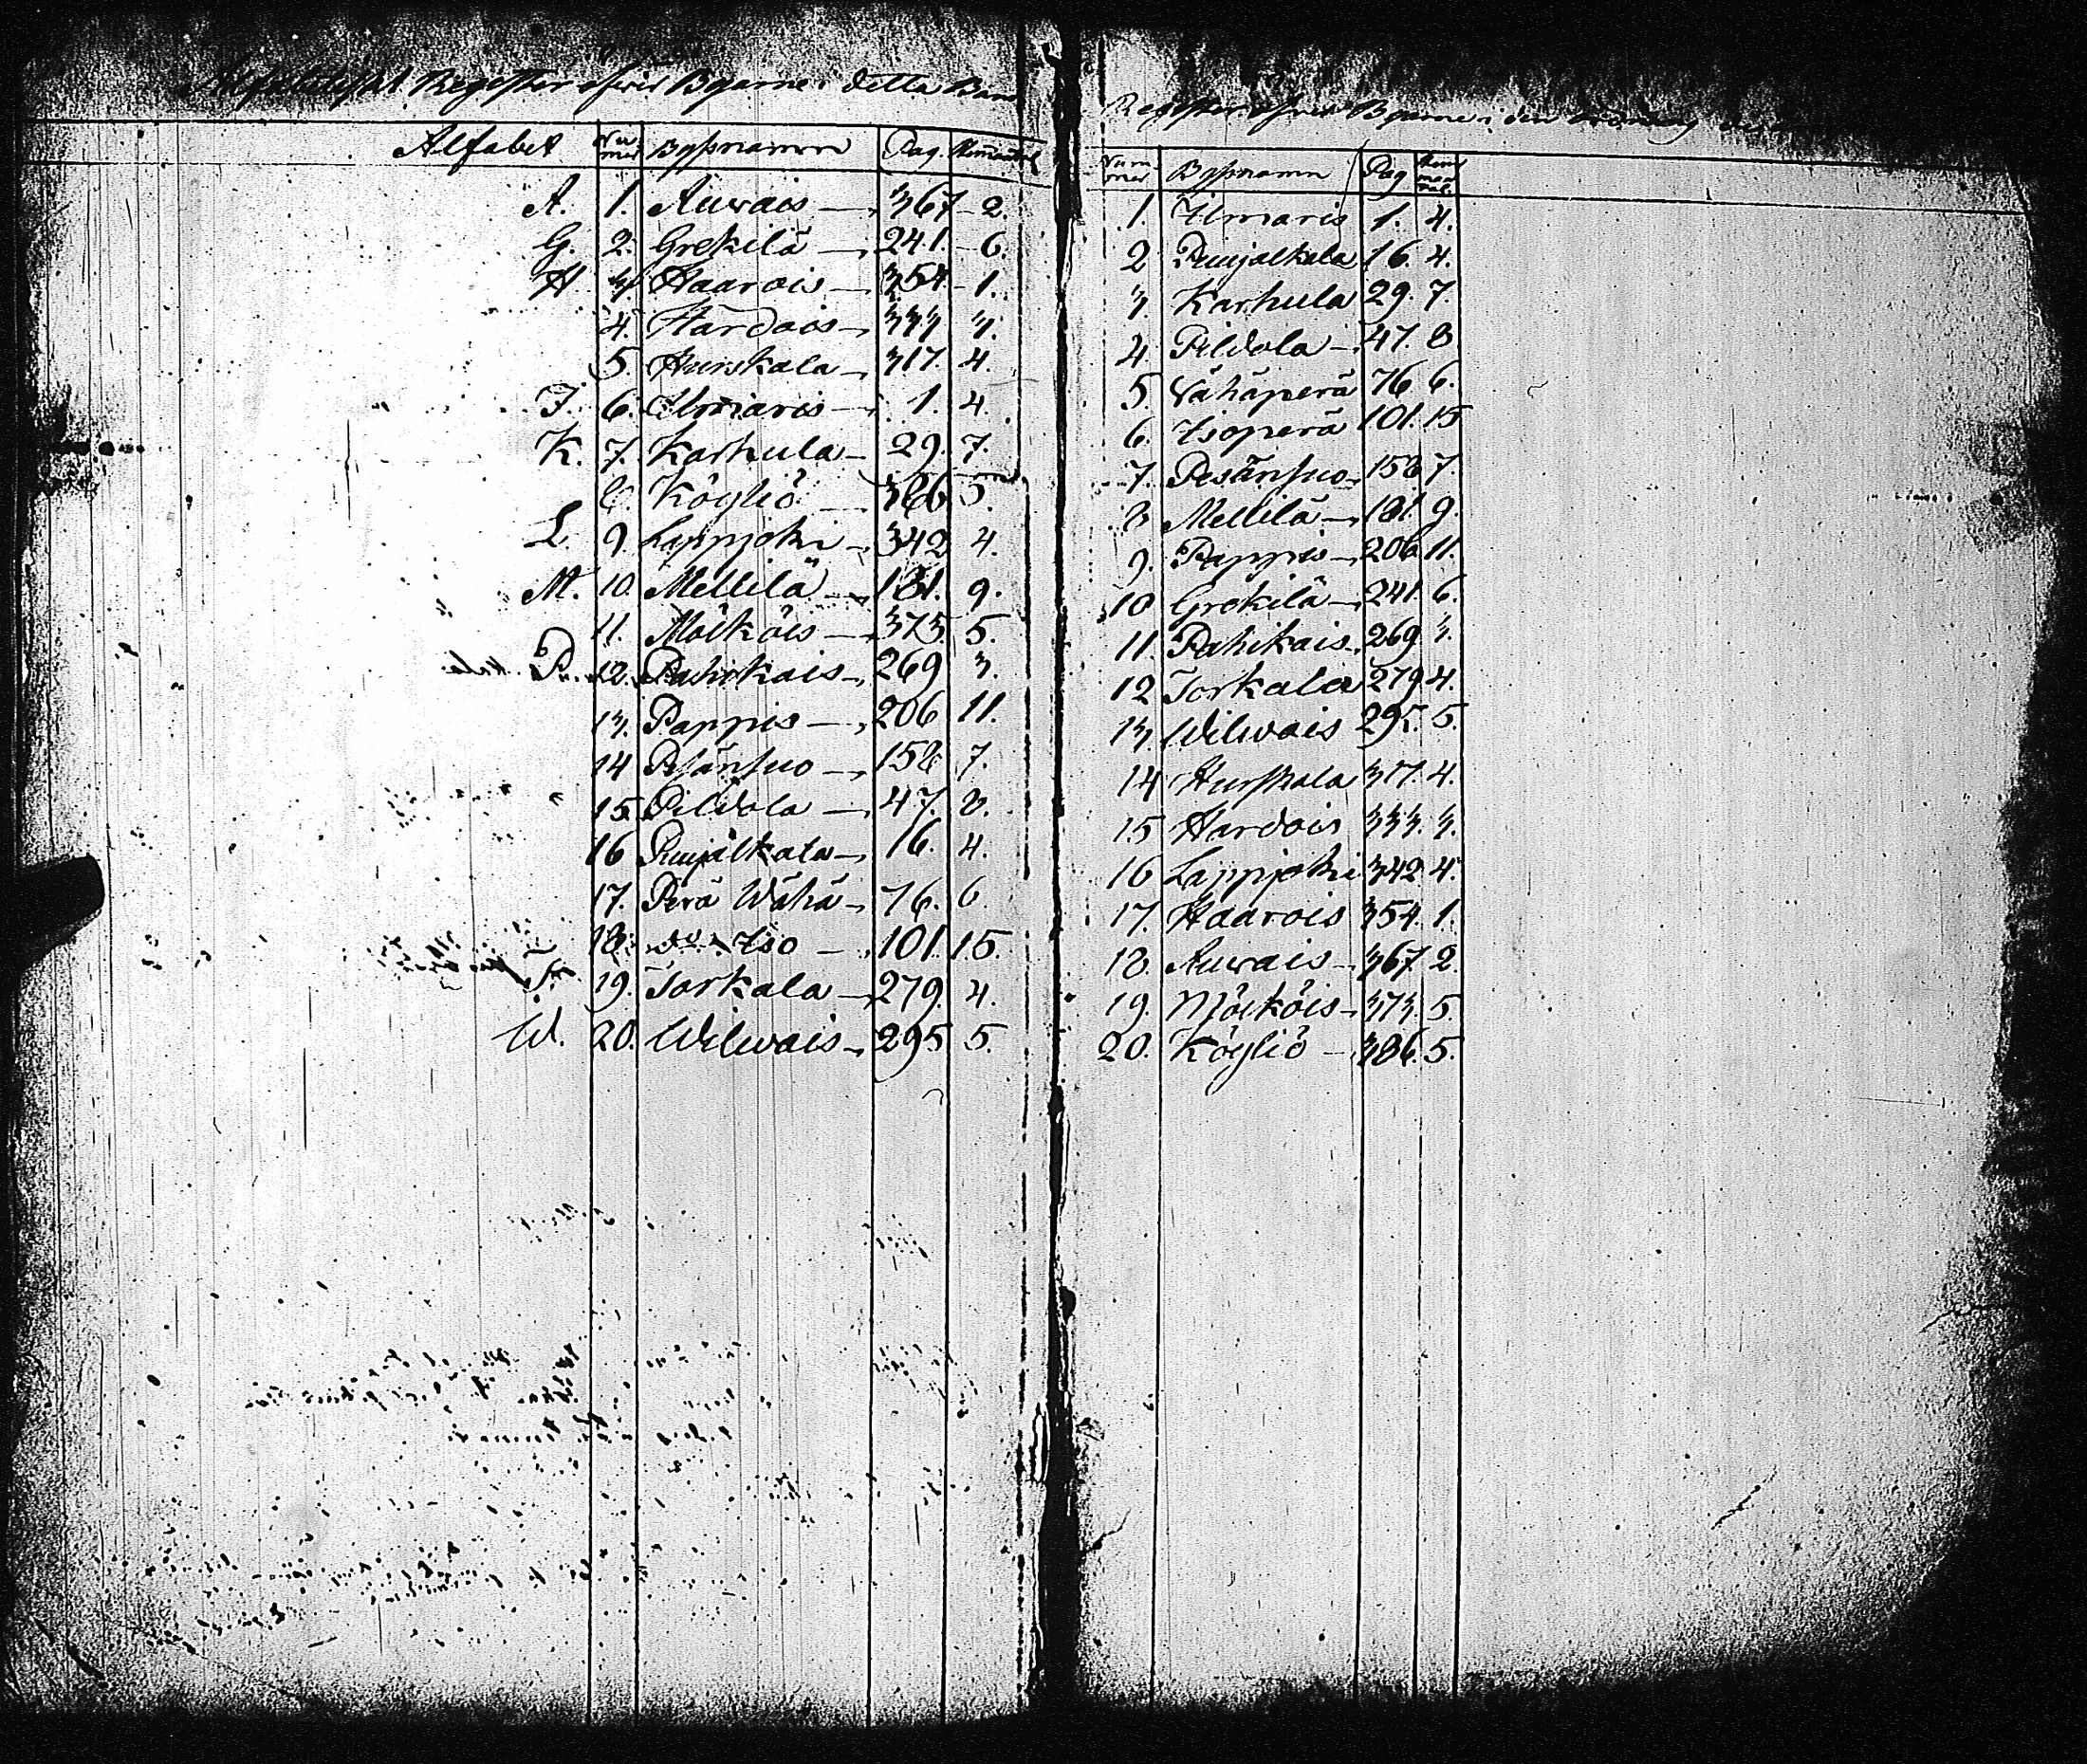 Alfabetiskt Register öfver Byarne i detta Band
Alfabet Nummer Bysnamn Pag. Hemantal
A. 1. Auvais — 367 - 2.
G. 2. Grekilä — 241. - 6.
H. 3. Haarois — 354 - 1.
4. Hardois — 333 3.
5. Hurskala — 317. 4.
I. 6. Ilmaris — 1. 4.
K. 7. Karhula — 29. 7.
8. Köyliö — 386 5.
L. 9. Lappjoki — 342 4.
M. 10. Mellilä — 181. 9.
11. Mölköis — 373. 5.
P. 12. Pahikais — 269 3.
13. Pappis — 206 11.
14 Pesänsuo — 158 7.
15. Pildola — 47. 8.
16 Puujalkala — 16. 4.
17. Perä Wähä — 76. 6.
18. do Iso — 101. 15.
T. 19. Torkala — 279. 4.
W. 20. Wilwais — 295 5.
Register öfver Byarne i den ordning
Nummer Bysnamn Pag Hemmantal
1. Ilmaris 1. 4.
2 Puujalkala 16. 4.
3. Karhula 29. 7.
4. Pildola — 47. 8
5. Vähäperä 76 6.
6. Isoperä 101. 15
7. Pesänsuo 158 7.
8 Mellilä — 181. 9.
9. Pappis — 206 11.
10 Grekilä — 241. 6.
11. Pahikais 269 3.
12 Torkala 279 4.
13 Wilwais 295. 5.
14 Hurskala 317. 4.
15 Hardois 333. 3.
16 Lappjoki 342 4.
17. Haarois 354. 1.
18. Auvais — 367. 2.
19. Mölköis — 373. 5.
20. Köyliö — 386. 5.